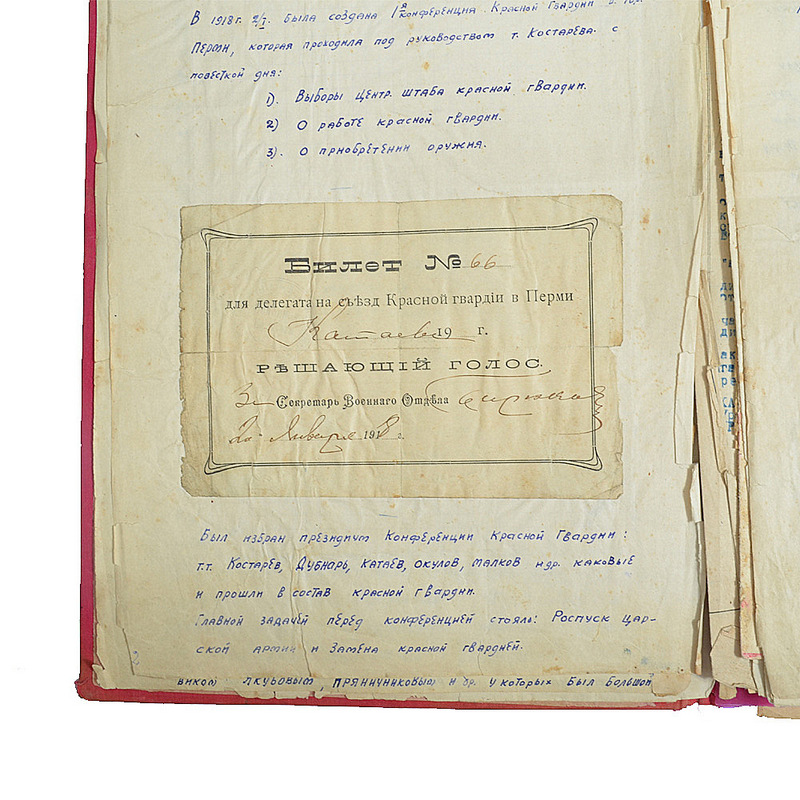 В 1918 г. 2/I. была создана 1я конференция Красной Гвардии в гор.
Перми, которая проходила под руководством т. Костарева. с
повесткой дня:
1). Выборы центр. штаба красной гвардии.
2) О работе красной гвардии.
3). О приобретении оружия.
Билет № 66
для делегата на съѣзд Красной гвардіи в Перми
Катаева 19 г.
РѢШАЮЩІЙ ГОЛОС.
За Секретарь Военнаго Отдѣла
2го Января 1918 г.
Был избран президиум Конференции Красной Гвардии:
т.т. Костарев, Дубнарь, Катаев, Окулов, Малков и др. каковые
и прошли в состав красной гвардии.
Главной задачей перед конференцией стояло: Роспуск цар-
ской армии и замена красной гвардией.
Пряничниковым и др. у которых был большой